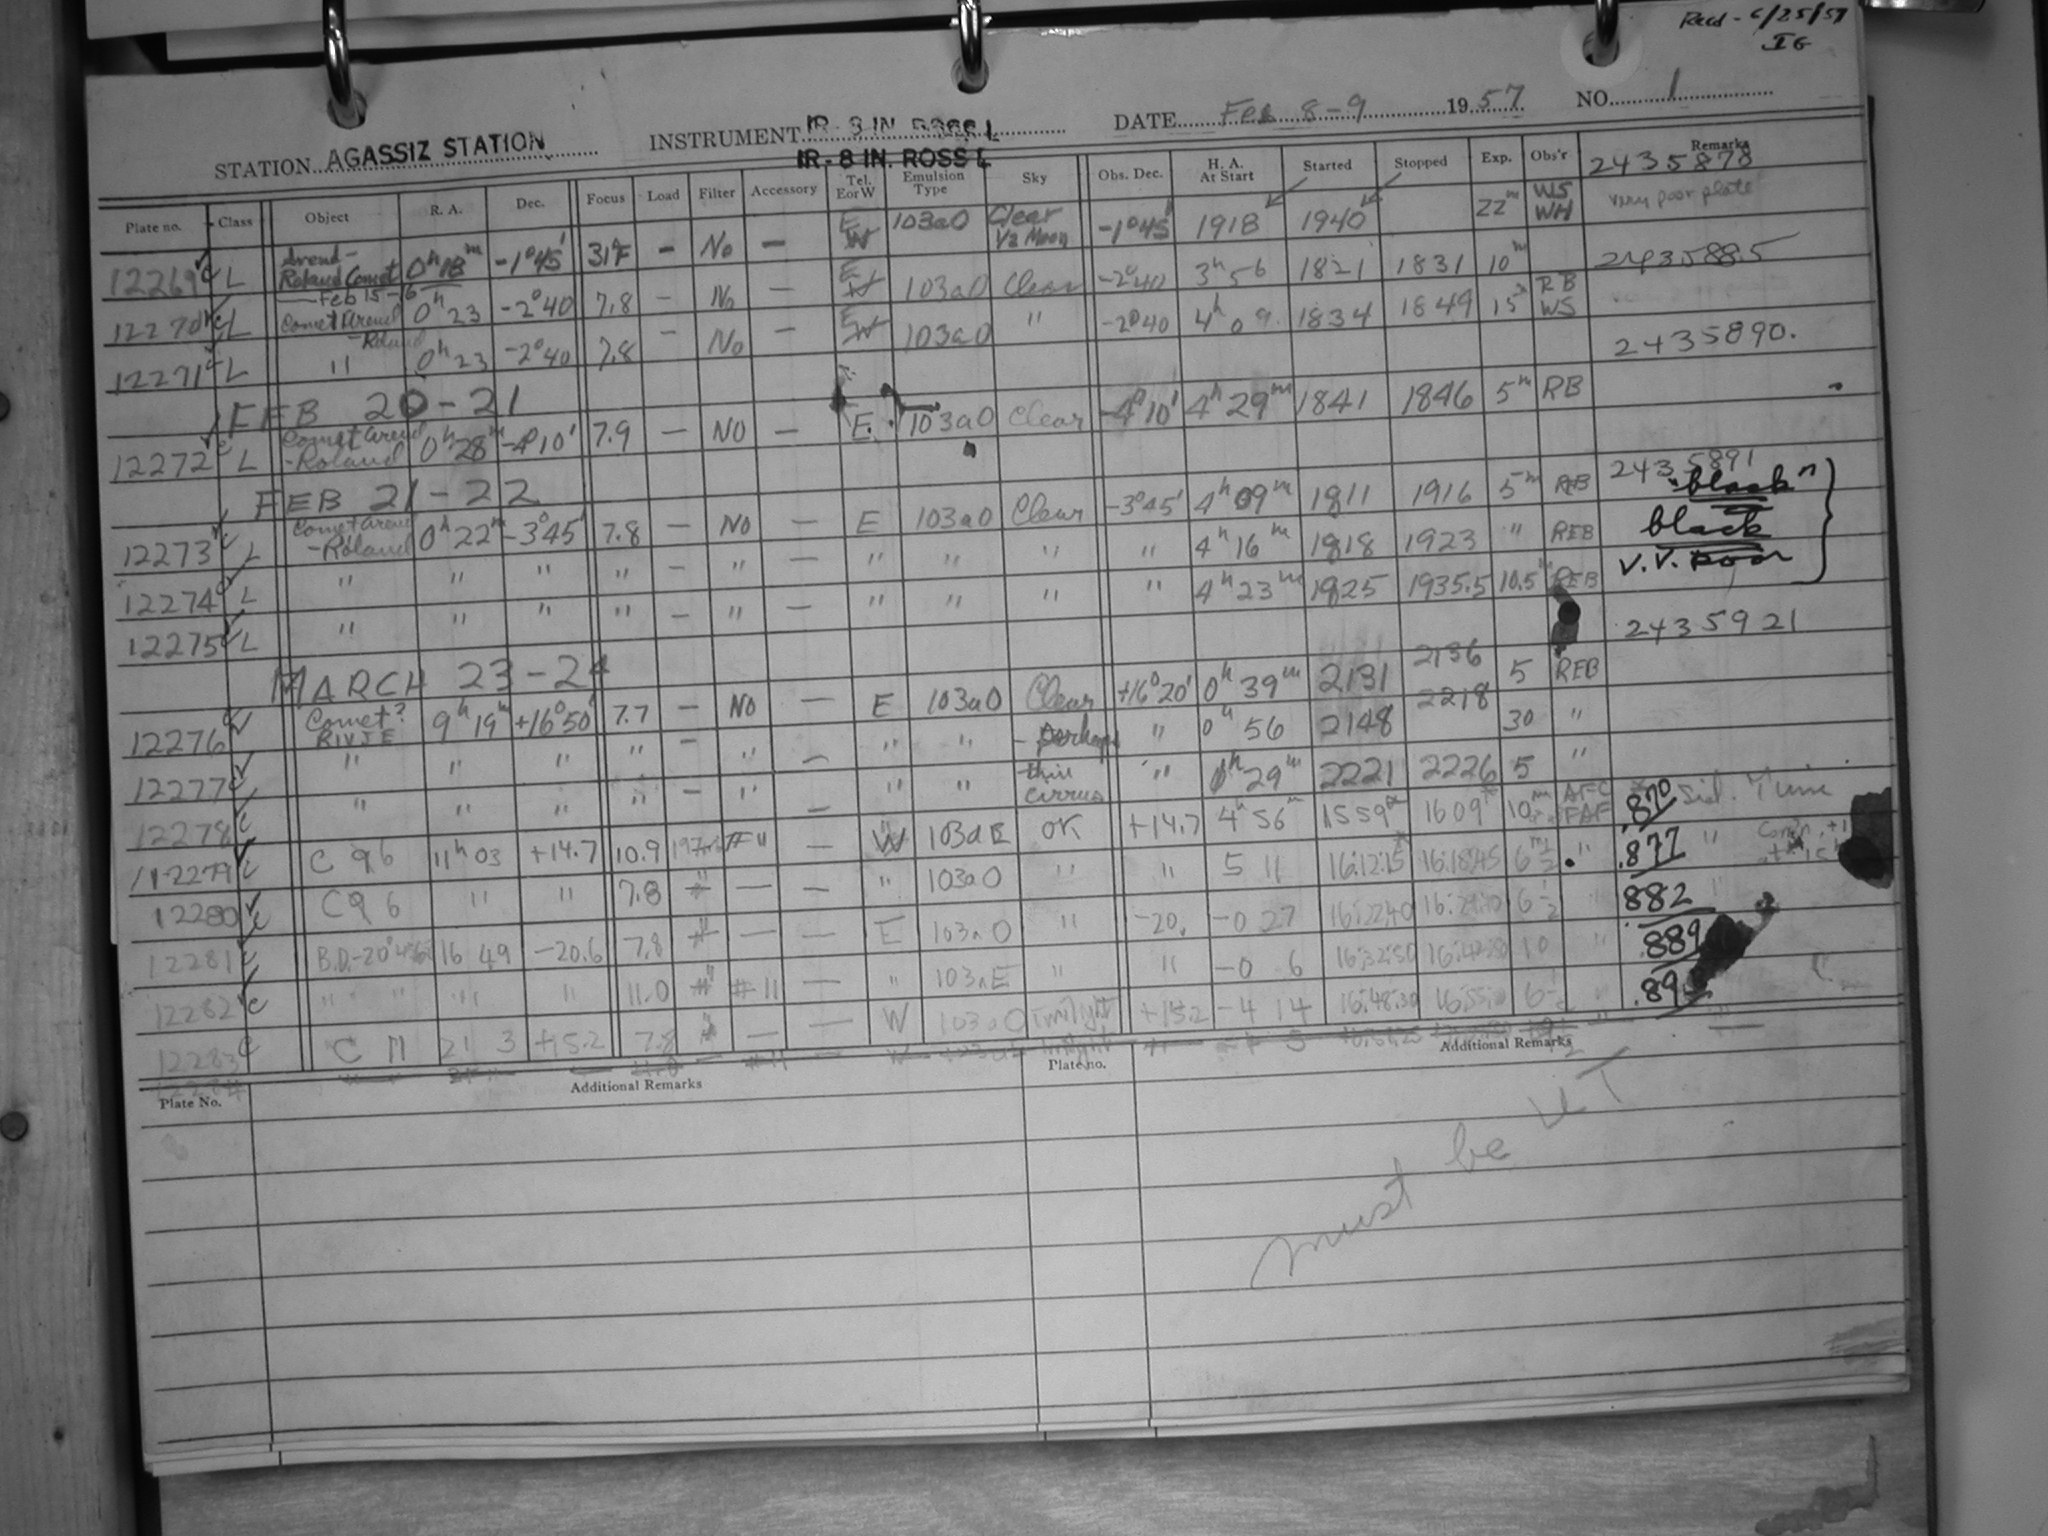 Recd - 6/25/57
IG
STATION AGASSIZ STATION INSTRUMENT IR-8 IN. ROSS L DATE Feb 8-9 1957 NO. 1
IR-8 IN. ROSS L
Plate no. Class Object R. A. Dec. Focus Load Filter Accessory Tel. E or W Emulsion Type Sky Obs. Dec. H. A. At Start Started Stopped Exp. Obs'r Remarks
2435878
12269 L Arend-Roland Comet 0h 18m -1°45' 31F - No - E W 103aO Clear 1/2 Moon -1°45' 1918 1940 22m WS WH very poor plate
Feb 15-16 2435885
12270 L Comet Arend-Roland 0h 23 -2°40 7.8 - No - E 103aO Clear -2°40 3h 56 1821 1831 10m
12271 L " 0h 23 -2°40 7.8 - No - E W 103aO " -2°40 4h 09 1834 1849 15m RB WS
FEB 20-21 2435890.
12272 L Comet Arend-Roland 0h 28m -4°10' 7.9 - NO - E. 103aO Clear -4°10' 4h 29m 1841 1846 5m RB
FEB 21-22 2435891
12273 L Comet Arend-Roland 0h 22m -3°45' 7.8 - No - E 103aO Clear -3°45' 4h 09m 1811 1916 5m REB "black"
12274 L " " " " - " - " " " " 4h 16m 1818 1923 " REB black
12275 L " " " " - " - " " " " 4h 23m 1825 1935.5 10.5m REB V.V. poor
MARCH 23-24 2435921
12276 C Comet? 9h 19m +16°50' 7.7 - No - E 103aO Clear +16°20' 0h 39m 2131 2136 5 REB
12277 C " " " " - " - " " - perhaps " 0h 56 2148 2218 30 "
12278 C " " " " - " - " " thin cirrus " 29m 2221 2226 5 "
12279 C C 96 11h 03 +14.7 10.9 - W 103aE OK +14.7 4h 56m 1559 1609 10m AFC FAF .870 Sid. Time
12280 C C 96 " " 7.8 - - " 103aO " " 5 11 16:12:15 16:18:45 6 1/2 " .877 "
12281 C B.D.-20° 16 49 -20.6 7.8 - - E 103aO " -20. -0 27 16:22:40 6 1/2 " 882 "
12282 C " " " " 11.0 #11 - " 103aE " " -0 6 16:32:50 10 " .889
12283 C C 11 21 3 +15.2 7.8 - - W 103aO Twilight +15.2 -4 14 16:48:30 6 1/2 "
Plate No. Additional Remarks Plate no. Additional Remarks
must be UT